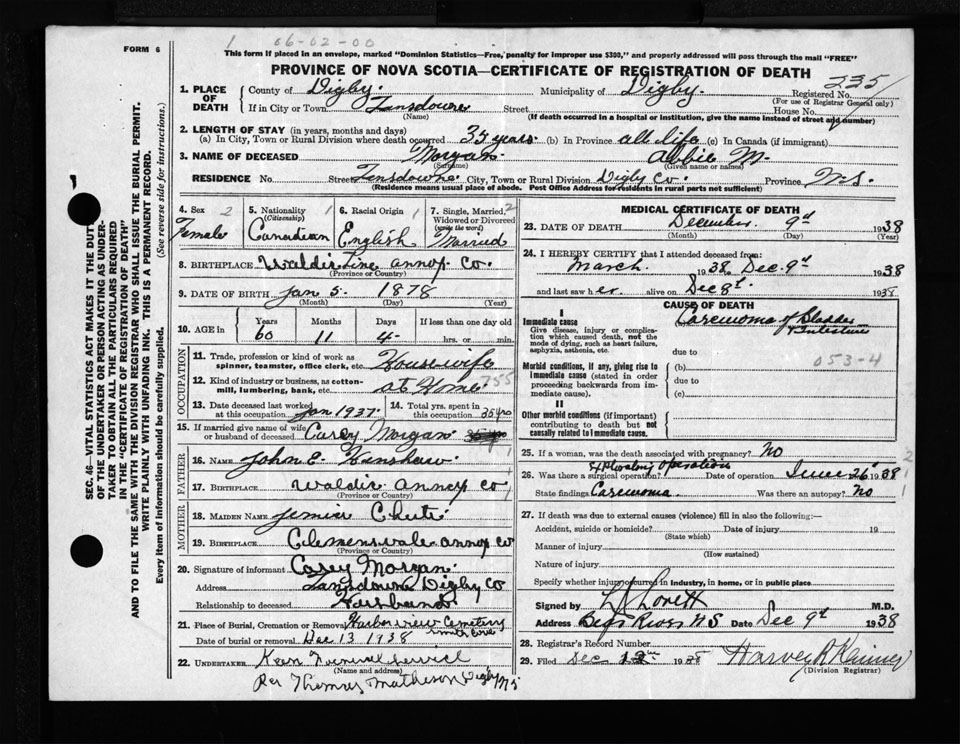 FORM 6
1 06-02-00
This form if placed in an envelope, marked "Dominion Statistics—Free, penalty for improper use $300," and properly addressed will pass through the mail "FREE"
PROVINCE OF NOVA SCOTIA—CERTIFICATE OF REGISTRATION OF DEATH
1. PLACE OF DEATH
County of Digby. Municipality of Digby. Registered No. 235
(For use of Registrar General only)
If in City or Town Lansdowne Street House No.
(Name) (If death occurred in a hospital or institution, give the name instead of street and number)
2. LENGTH OF STAY (in years, months and days)
(a) In City, Town or Rural Division where death occurred 35 years. (b) In Province all life (c) In Canada (if immigrant)
3. NAME OF DECEASED Morgan. Abbie M.
(Surname) (Given name or names)
RESIDENCE No. Street Lansdowne City, Town or Rural Division Digby Co. Province N.S.
(Residence means usual place of abode. Post Office Address for residents in rural parts not sufficient)
4. Sex 2
Female
5. Nationality 1
(Citizenship)
Canadian
6. Racial Origin 1
English
7. Single, Married, 2
Widowed or Divorced
(write the word)
Married
8. BIRTHPLACE Waldis Line annap. Co.
(Province or Country)
9. DATE OF BIRTH Jan 5. 1878
(Month) (Day) (Year)
10. AGE in Years Months Days If less than one day old
60 11 4 hrs. or min.
OCCUPATION
11. Trade, profession or kind of work as
spinner, teamster, office clerk, etc. Housewife
12. Kind of industry or business, as cotton-
mill, lumbering, bank, etc. at Home. 755
13. Date deceased last worked
at this occupation Jan 1937.
14. Total yrs. spent in
this occupation 35 yrs
15. If married give name of wife
or husband of deceased Casey Morgan.
FATHER
16. Name John E. Henshaw.
17. Birthplace Waldis annap Co
(Province or Country)
MOTHER
18. Maiden Name Chute
19. Birthplace Clemensvale annap Co
(Province or Country)
20. Signature of informant Casey Morgan.
Address Lansdowne Digby Co
Relationship to deceased Husband
21. Place of Burial, Cremation or Removal Harborview Cemetery
Smith Cove
Date of burial or removal Dec 13 1938
22. UNDERTAKER Funeral Service
(Name and address)
Per Thomas Matheson Digby NS
MEDICAL CERTIFICATE OF DEATH
23. DATE OF DEATH December 9th 1938
(Month) (Day) (Year)
24. I HEREBY CERTIFY that I attended deceased from:
March. 1938 Dec. 9th 1938
and last saw her alive on Dec 8th 1938
CAUSE OF DEATH
I
Immediate cause
Give disease, injury or complication which caused death, not the mode of dying, such as heart failure, asphyxia, asthenia, etc.
Carcinoma of Bladder
Intestine
due to
Morbid conditions, if any, giving rise to immediate cause (stated in order proceeding backwards from immediate cause).
(b) 053-4
due to
(c)
II
Other morbid conditions (if important) contributing to death but not causally related to immediate cause.
25. If a woman, was the death associated with pregnancy? No 2
26. Was there a surgical operation? Exploratory operation Date of operation June 26 1938 1
State findings Carcinoma. Was there an autopsy? No 1
27. If death was due to external causes (violence) fill in also the following:—
Accident, suicide or homicide? Date of injury 19
(State which)
Manner of injury
(How sustained)
Nature of injury
Specify whether injury occurred in industry, in home, or in public place
Signed by Lovett M.D.
Address Bear River NS Date Dec 9th 1938
28. Registrar's Record Number
29. Filed Dec 1938 Harvey
(Division Registrar)
SEC. 46—VITAL STATISTICS ACT MAKES IT THE DUTY
OF THE UNDERTAKER OR PERSON ACTING AS UNDER-
TAKER TO OBTAIN ALL THE PARTICULARS REQUIRED
IN THE "CERTIFICATE OF REGISTRATION OF DEATH"
AND TO FILE THE SAME WITH THE DIVISION REGISTRAR WHO SHALL ISSUE THE BURIAL PERMIT.
WRITE PLAINLY WITH UNFADING INK. THIS IS A PERMANENT RECORD.
Every item of information should be carefully supplied. (See reverse side for instructions.)